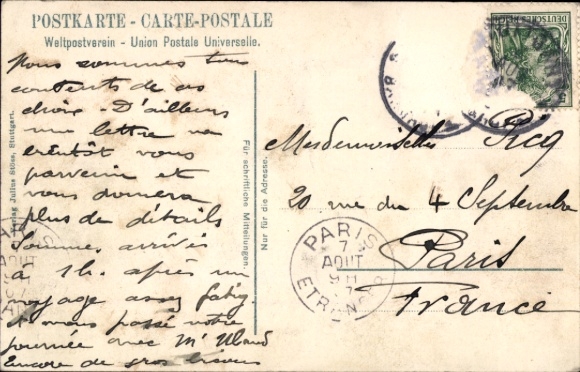 POSTKARTE - CARTE-POSTALE
Weltpostverein - Union Postale Universelle.
Nous sommes tous
contents de ce
choix - D'ailleurs
une lettre va
bientôt vous
parvenir et
vous donnera
plus de détails
Sommes arrivés
à 1h. après un
voyage assez fatig.
et nous passé notre
journée avec Mr
Encore de gros baisers
Verlag Julius Stöss, Stuttgart.
Für schriftliche Mitteilungen.
Nur für die Adresse.
DEUTSCHES REICH
5
Mesdemoiselles
20 rue du 4 Septembre
Paris
France
PARIS
7
AOUT
9 M
ETRANGER